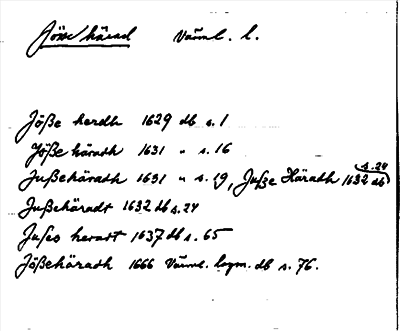 Jösse härad Värml. l.
Jöße herdh 1629 db s. 1
Jöße häradh 1631 " s. 16
Jußehäradh 1631 " s. 19, Juße Häradh 1632 db s. 24
Jußehäradt 1632 db s. 24
Juses heradt 1637 db s. 65
Jößehäradh 1666 Värml. lagm. db s. 76.